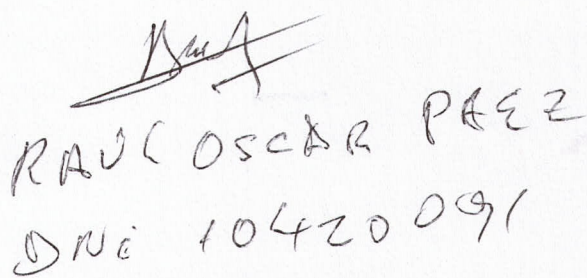 RAUL OSCAR PAEZ
DNi 10420091